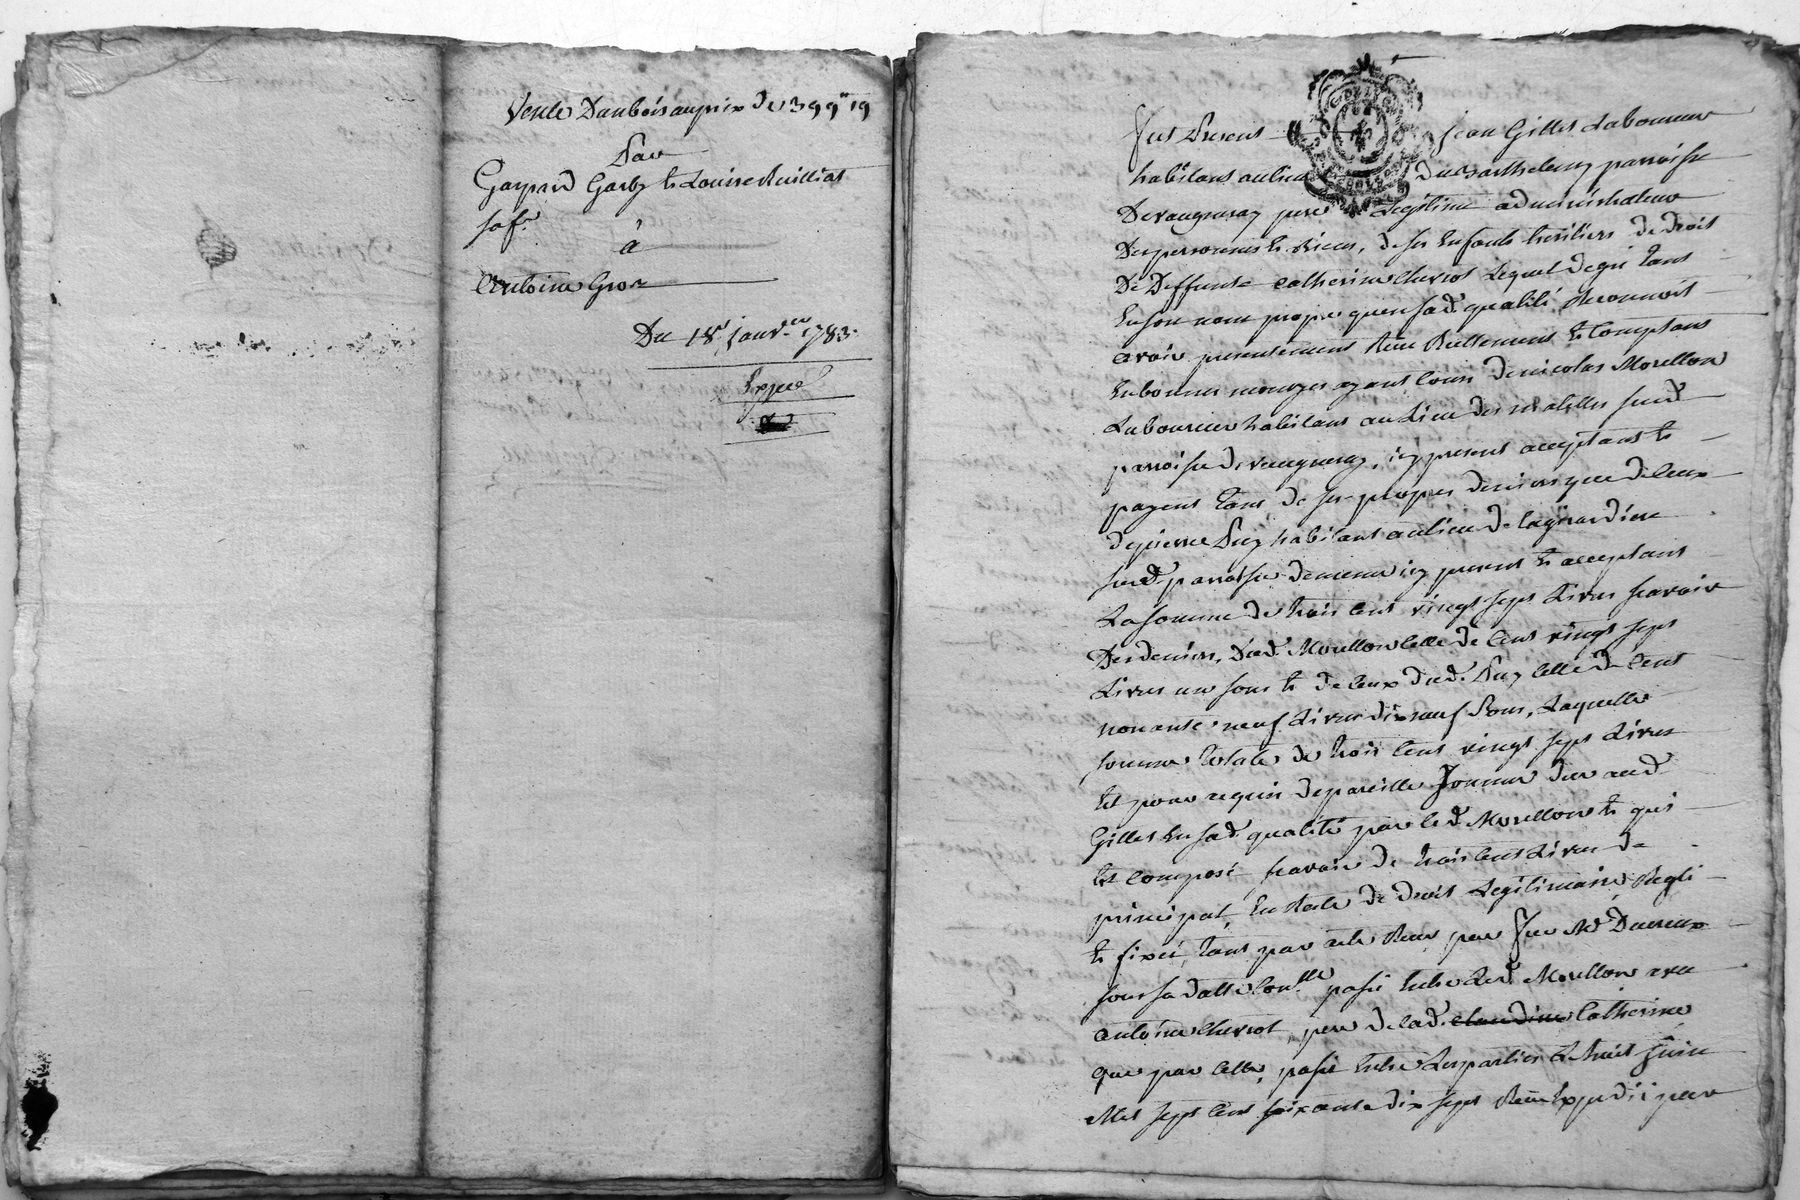 Vente Dun bois au prix de 399" 19
Par
Gaspard Garby & Louise Ruilliat
saf.e
à
Antoine Gros
Du 18 janv.er 1783.
Expée
Fut Present Jean Gilles Laboureur
habitant au lieu du Barthelemy parroisse
De vaugneray pere Legitime administrateur
Des personnes & Biens, de ses Enfants heritiers de droit
De Deffunte Catherine Cheriot Lequel de gré tant
En son nom propre quen sad. qualité Reconnoit
avoir presentement Reçu Réellement & Comptant
En bonnes monoyes ayant Cours de nicolas Morellon
Laboureur habitant au Lieu des sud.
parroisse de vaugneray, icy present acceptant &
payant tant de ses propres deniers que de Ceux
de pierre Puy habitant au lieu de la girardiere
sud. parroisse de meme icy present & acceptant
La somme de trois Cent vingt sept Livres scavoir
Des deniers, Dud. Morellon Celle de Cent vingt sept
Livres un sous & de Ceux dud. Puy Celle de Cent
nonante neuf Livres dix neuf Sous, Laquelle
somme totale de trois Cent vingt sept Livres
Est pour acquis de pareille somme due aud.
Gilles En sad. qualité par led. Morellon & qui
Est Composé scavoir de trois Cent Livres de
principal, En Reste de droit Legitimaire Reglé
& fixé, tant par acte Reçu par feu Me Ducreux
sous sa datte Con.lle passé Entre Led. Morellon avec
antoine Cheriot, pere de lad. claudine Catherine
que par Celle, passé Entre Les parties Le huit juin
Mil sept Cent soixante dix sept Reçu Expedié par